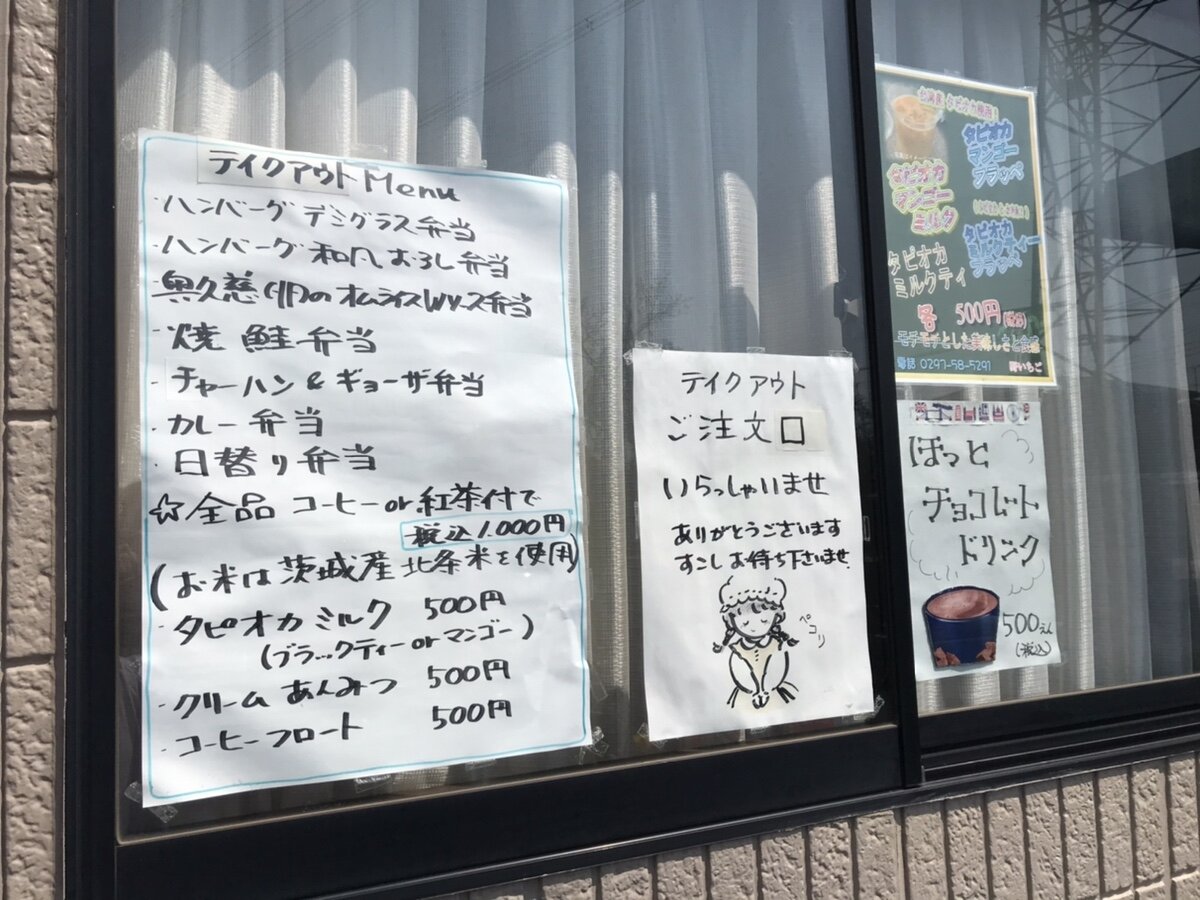 テイクアウトMenu
・ハンバーグ デミグラス弁当
・ハンバーグ 和風おろし弁当
・奥久慈卵のオムライスWソース弁当
・焼鮭弁当
・チャーハン&ギョーザ弁当
・カレー弁当
・日替り弁当
☆全品 コーヒーor紅茶付で
税込1.000円
(お米は茨城産北条米を使用)
・タピオカミルク 500円
(ブラックティーorマンゴー)
・クリームあんみつ 500円
・コーヒーフロート 500円
テイクアウト
ご注文口
いらっしゃいませ
ありがとうございます
すこしお待ち下さいませ
ペコリ
タピオカ
マンゴー
フラッペ
タピオカ
マンゴー
ミルク
タピオカ
フラッペ
タピオカ
ミルクティ
各 500円(税込)
モチモチとした美味しさと食感
電話 0297-58-5291
野いちご
ほっと
チョコレート
ドリンク
500えん
(税込)